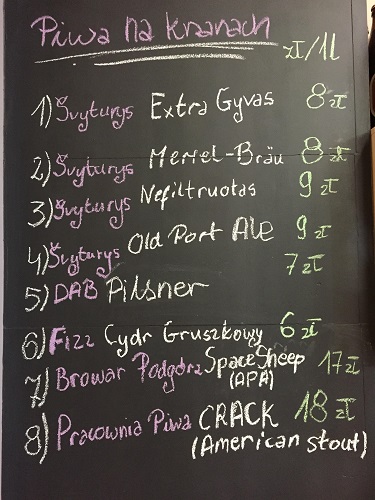 Piwa na kranach
zł/1l
1) Švyturys Extra Gyvas 8 zł
2) Švyturys Memel-Bräu 8 zł
3) Švyturys Nefiltruotas 9 zł
4) Švyturys Old Port Ale 9 zł
5) DAB Pilsner 7 zł
6) Fizz Cydr Gruszkowy 6 zł
7) Browar Podgórz SpaceSheep 17 zł
(APA)
8) Pracownia Piwa CRACK 18 zł
(American stout)